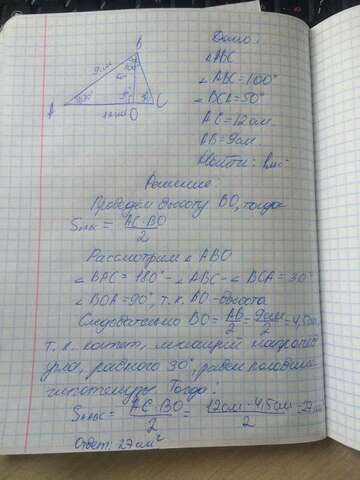 Дано:
△ABC
∠ABC=100°
∠BCA=50°
AC=12см
AB=9см
Найти:
B
9см
A
12см
O
C
Решение:
Проведём высоту BO, тогда
S△ABC = AC·BO / 2
Рассмотрим △ABO
∠BAC = 180° - ∠ABC - ∠BCA = 30°
∠BOA = 90°, т.к. BO - высота
Следовательно BO = AB/2 = 9см/2 = 4,5см
т.к. катет, лежащий напротив
угла, равного 30°, равен половине
гипотенузы. Тогда:
S△ABC = AC·BO / 2 = 12см·4,5см / 2 = 27см
Ответ: 27см²